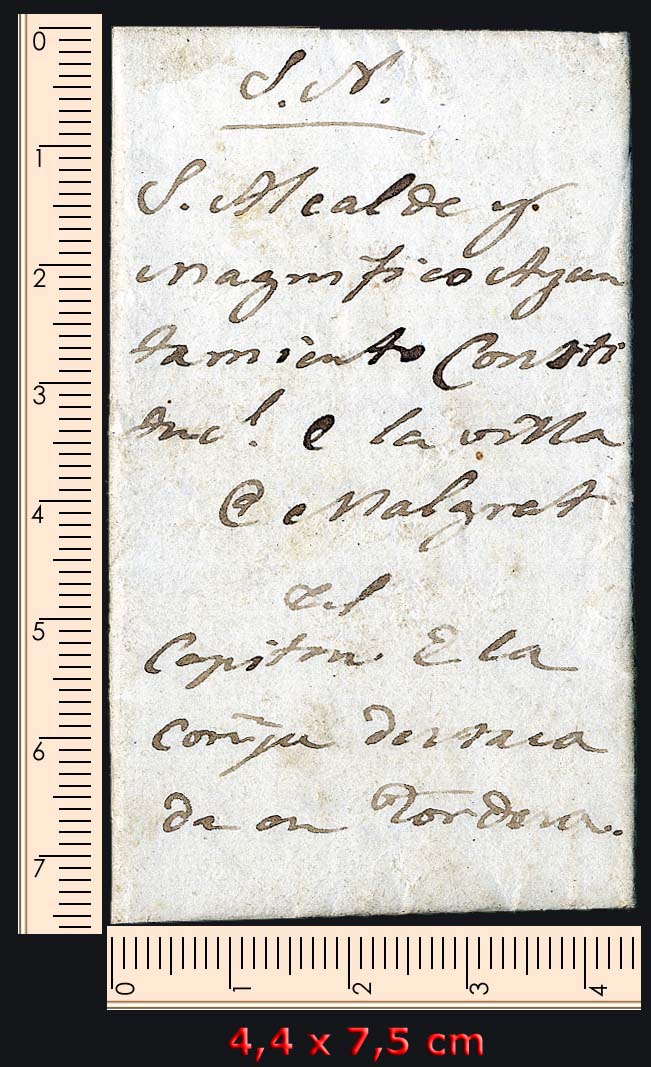 S. N.
S. Alcalde y.
Magnifico Ayun
tamiento Consti
tuc.l e la villa
@ e Malgrat
del
Capitan E la
compª destaca
da en Tordera.
0
1
2
3
4
5
6
7
0 1 2 3 4
4,4 x 7,5 cm